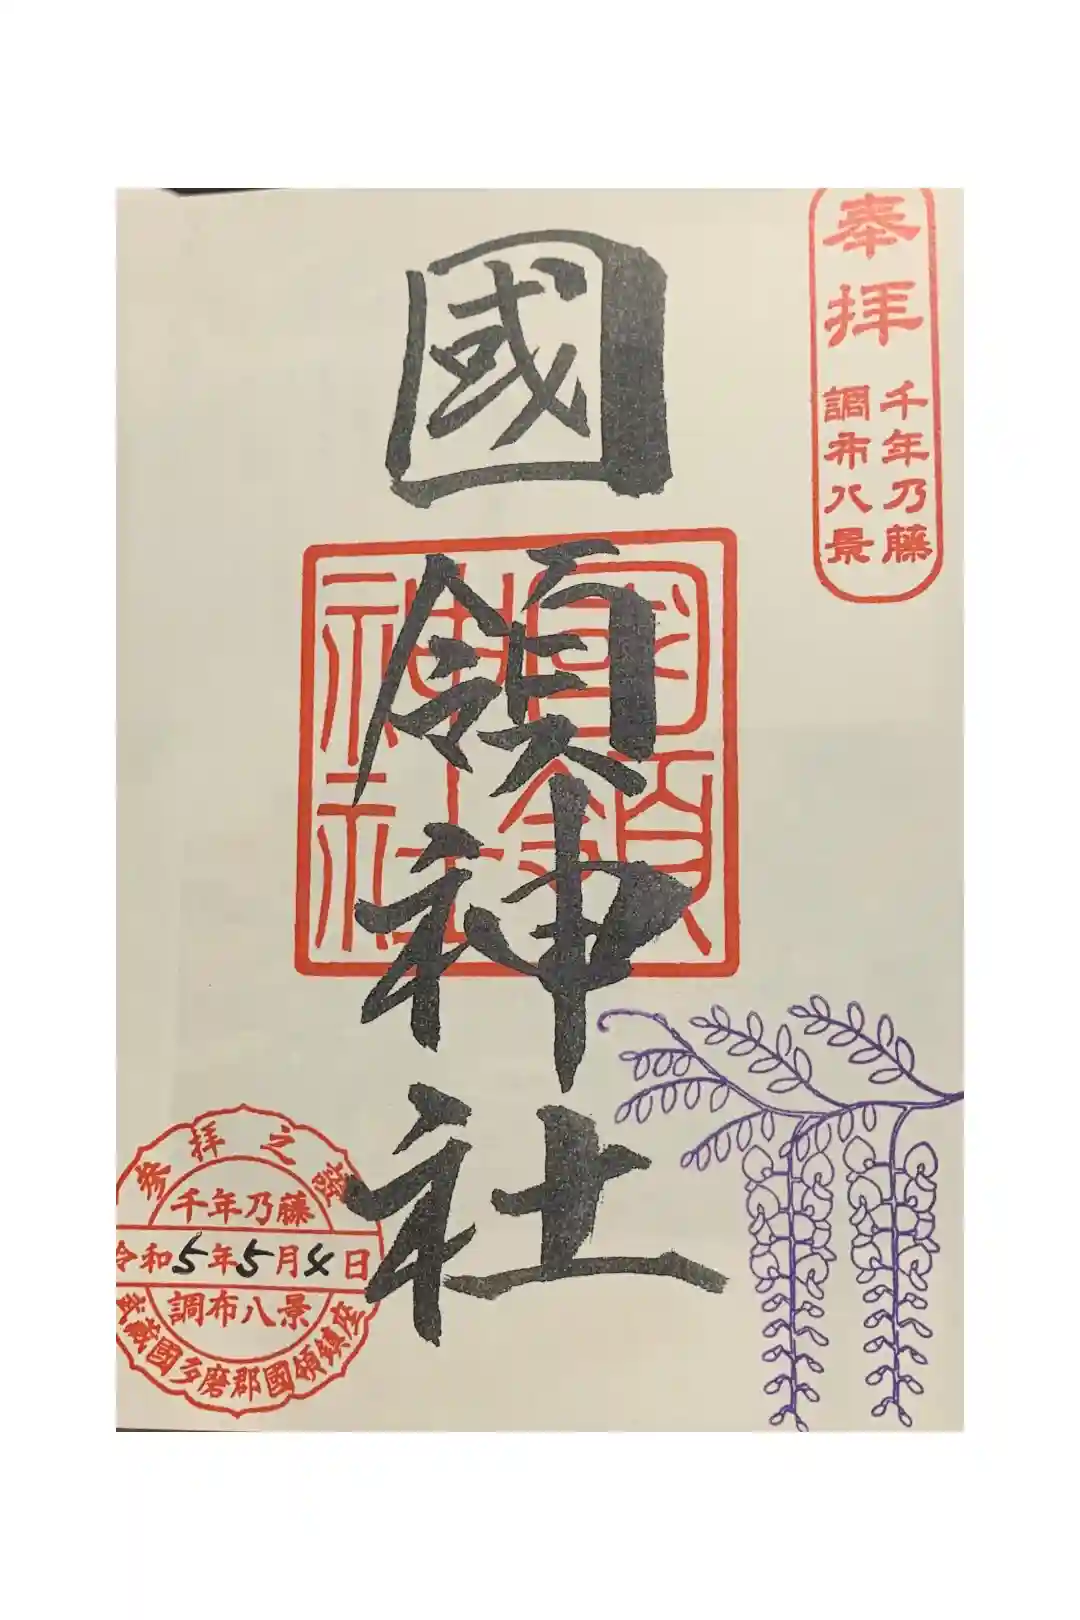 奉拝
千年乃藤
調布八景
國領神社
國領
神社
參拝之證
千年乃藤
令和5年5月4日
調布八景
武藏國多磨郡國領鎮座